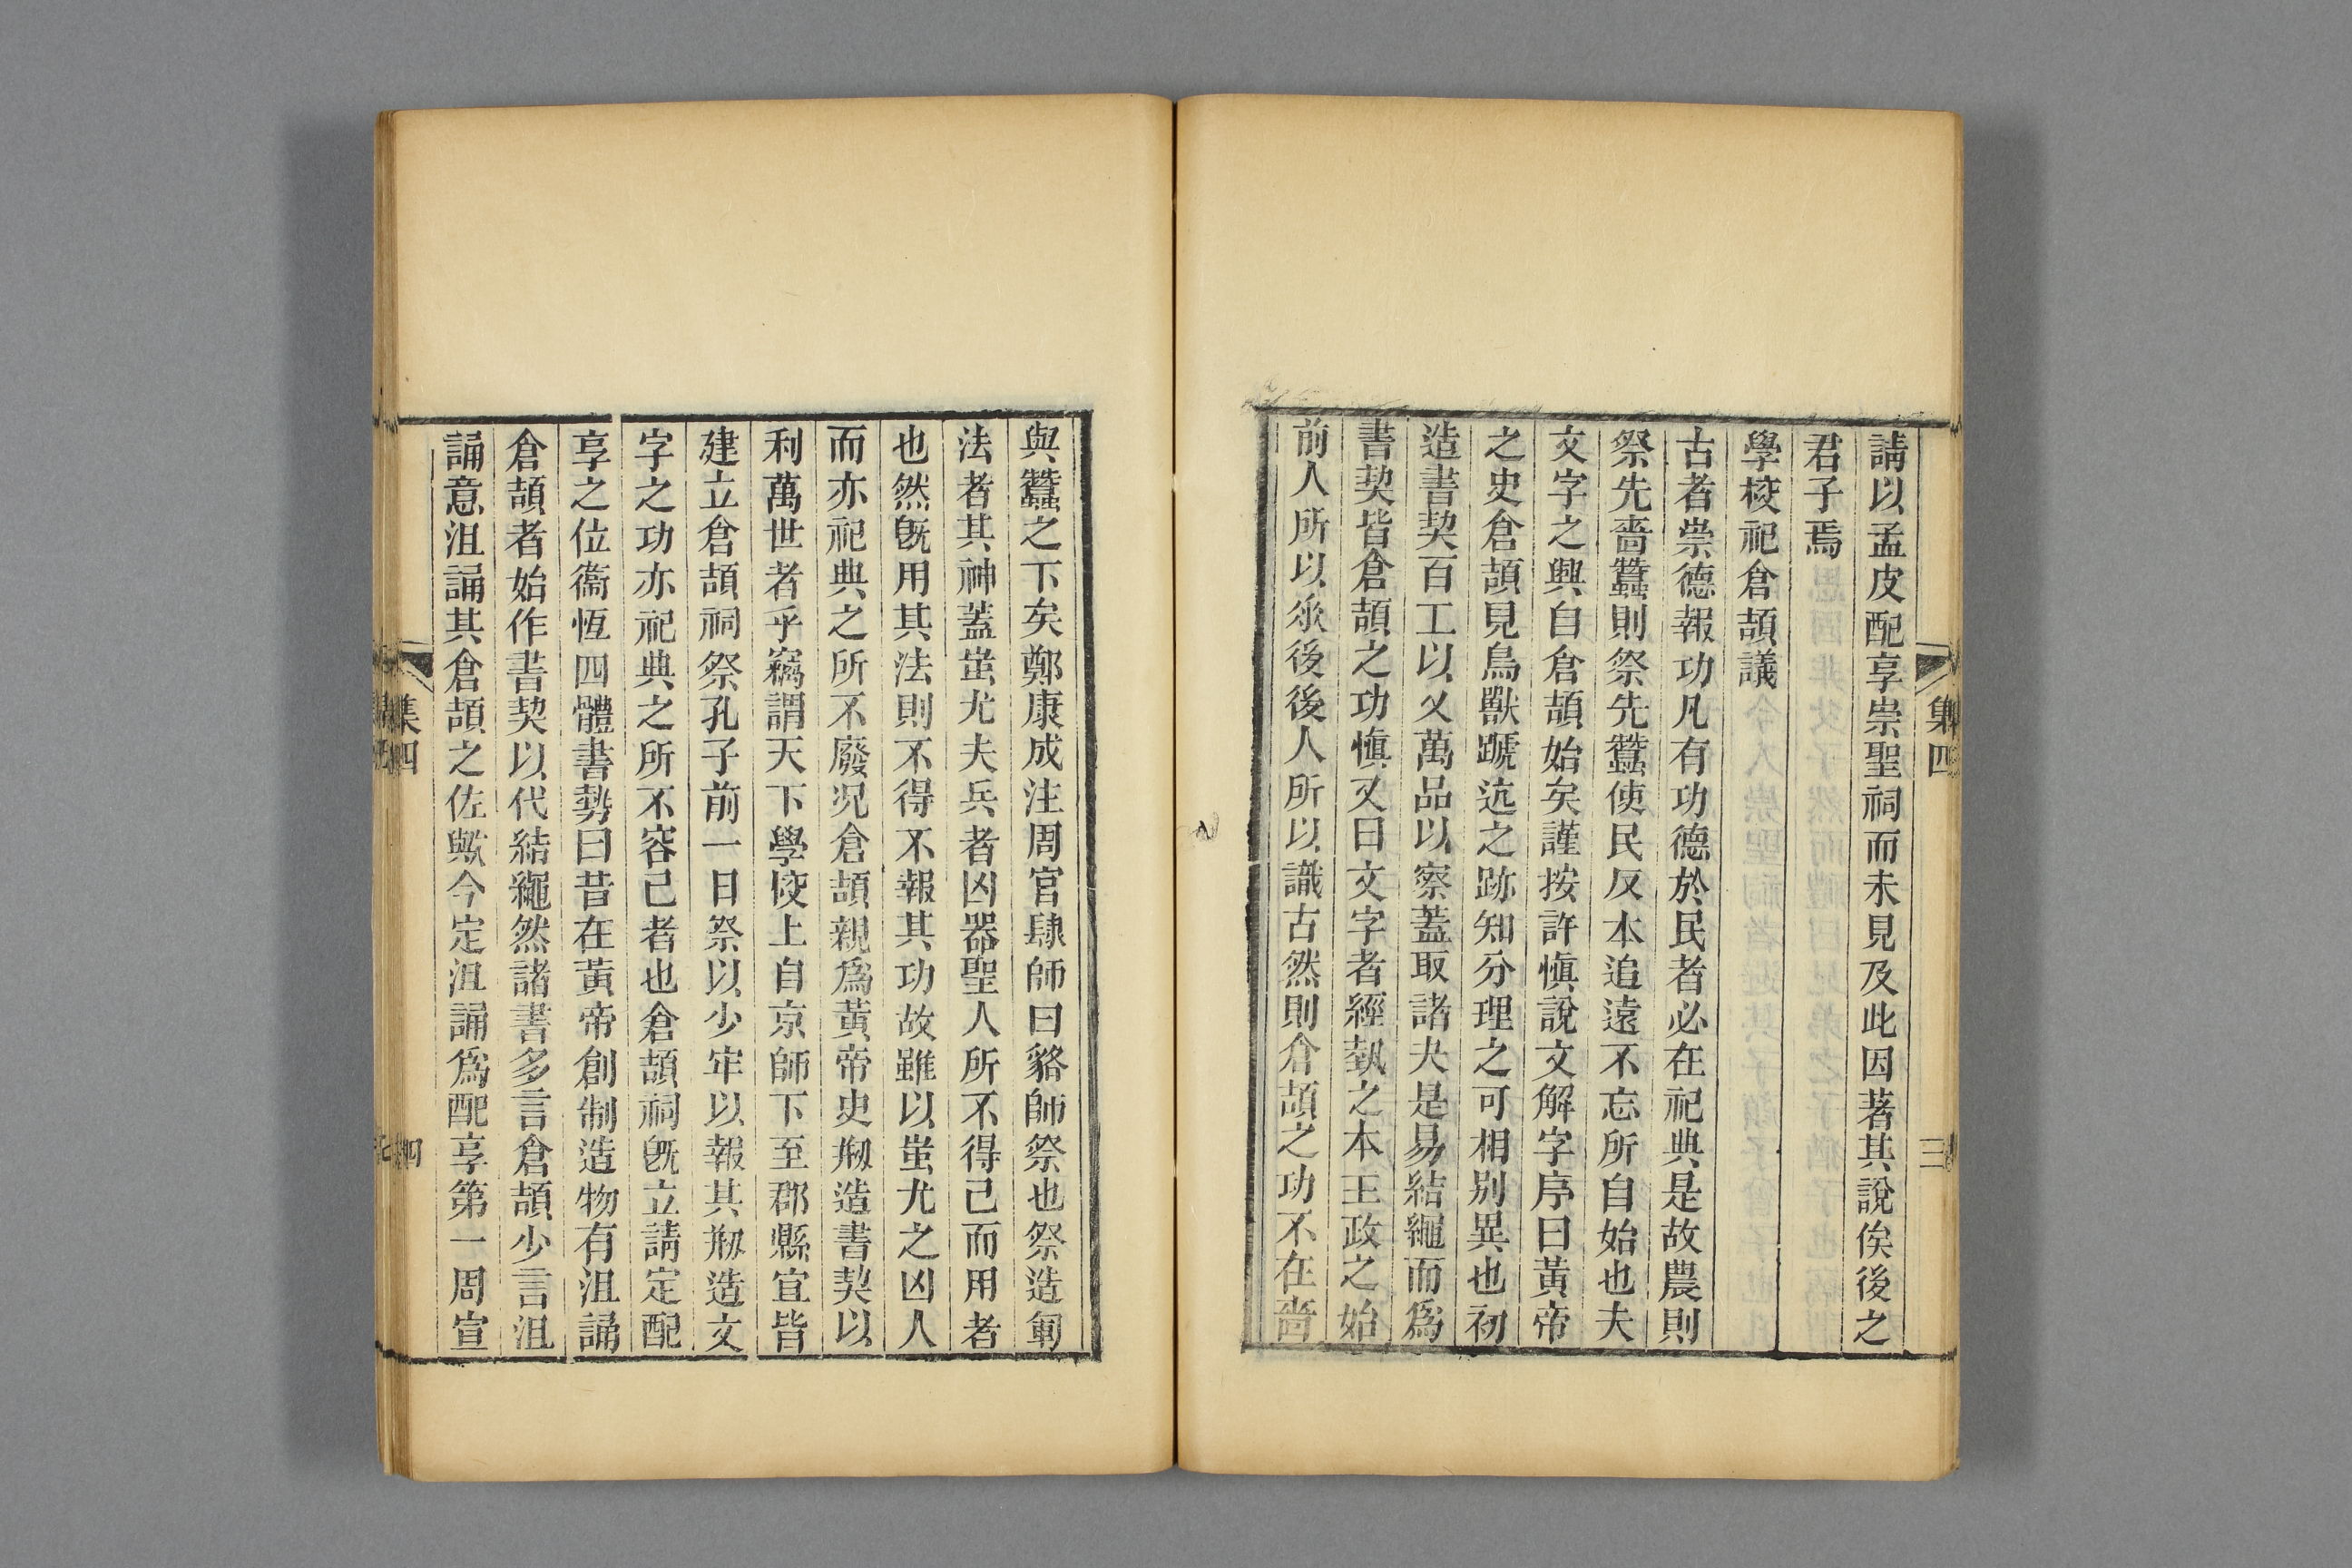 請以孟皮配享崇聖祠而未見及此因著其說俟後之
君子焉
學校祀倉頡議
古者崇德報功凡有功德於民者必在祀典是故農則
祭先嗇蠶則祭先蠶使民反本追遠不忘所自始也夫
文字之興自倉頡始矣謹按許愼說文解字序曰黃帝
之史倉頡見鳥獸蹏迒之跡知分理之可相別異也初
造書契百工以乂萬品以察蓋取諸夬是易結繩而爲
書契皆倉頡之功愼又曰文字者經埶之本王政之始
前人所以𠂹後後人所以識古然則倉頡之功不在嗇
與蠶之下矣鄭康成注周官肆師曰貉師祭也祭造軍
法者其神蓋蚩尤夫兵者凶器聖人所不得已而用者
也然旣用其法則不得不報其功故雖以蚩尤之凶人
而亦祀典之所不廢况倉頡親爲黃帝史刱造書契以
利萬世者乎竊謂天下學校上自京師下至郡縣宜皆
建立倉頡祠祭孔子前一日祭以少牢以報其刱造文
字之功亦祀典之所不容已者也倉頡祠旣立請定配
享之位衞恆四體書勢曰昔在黃帝創制造物有沮誦
倉頡者始作書契以代結繩然諸書多言倉頡少言沮
誦意沮誦其倉頡之佐歟今定沮誦爲配享第一周宣
集四
三
集四
四